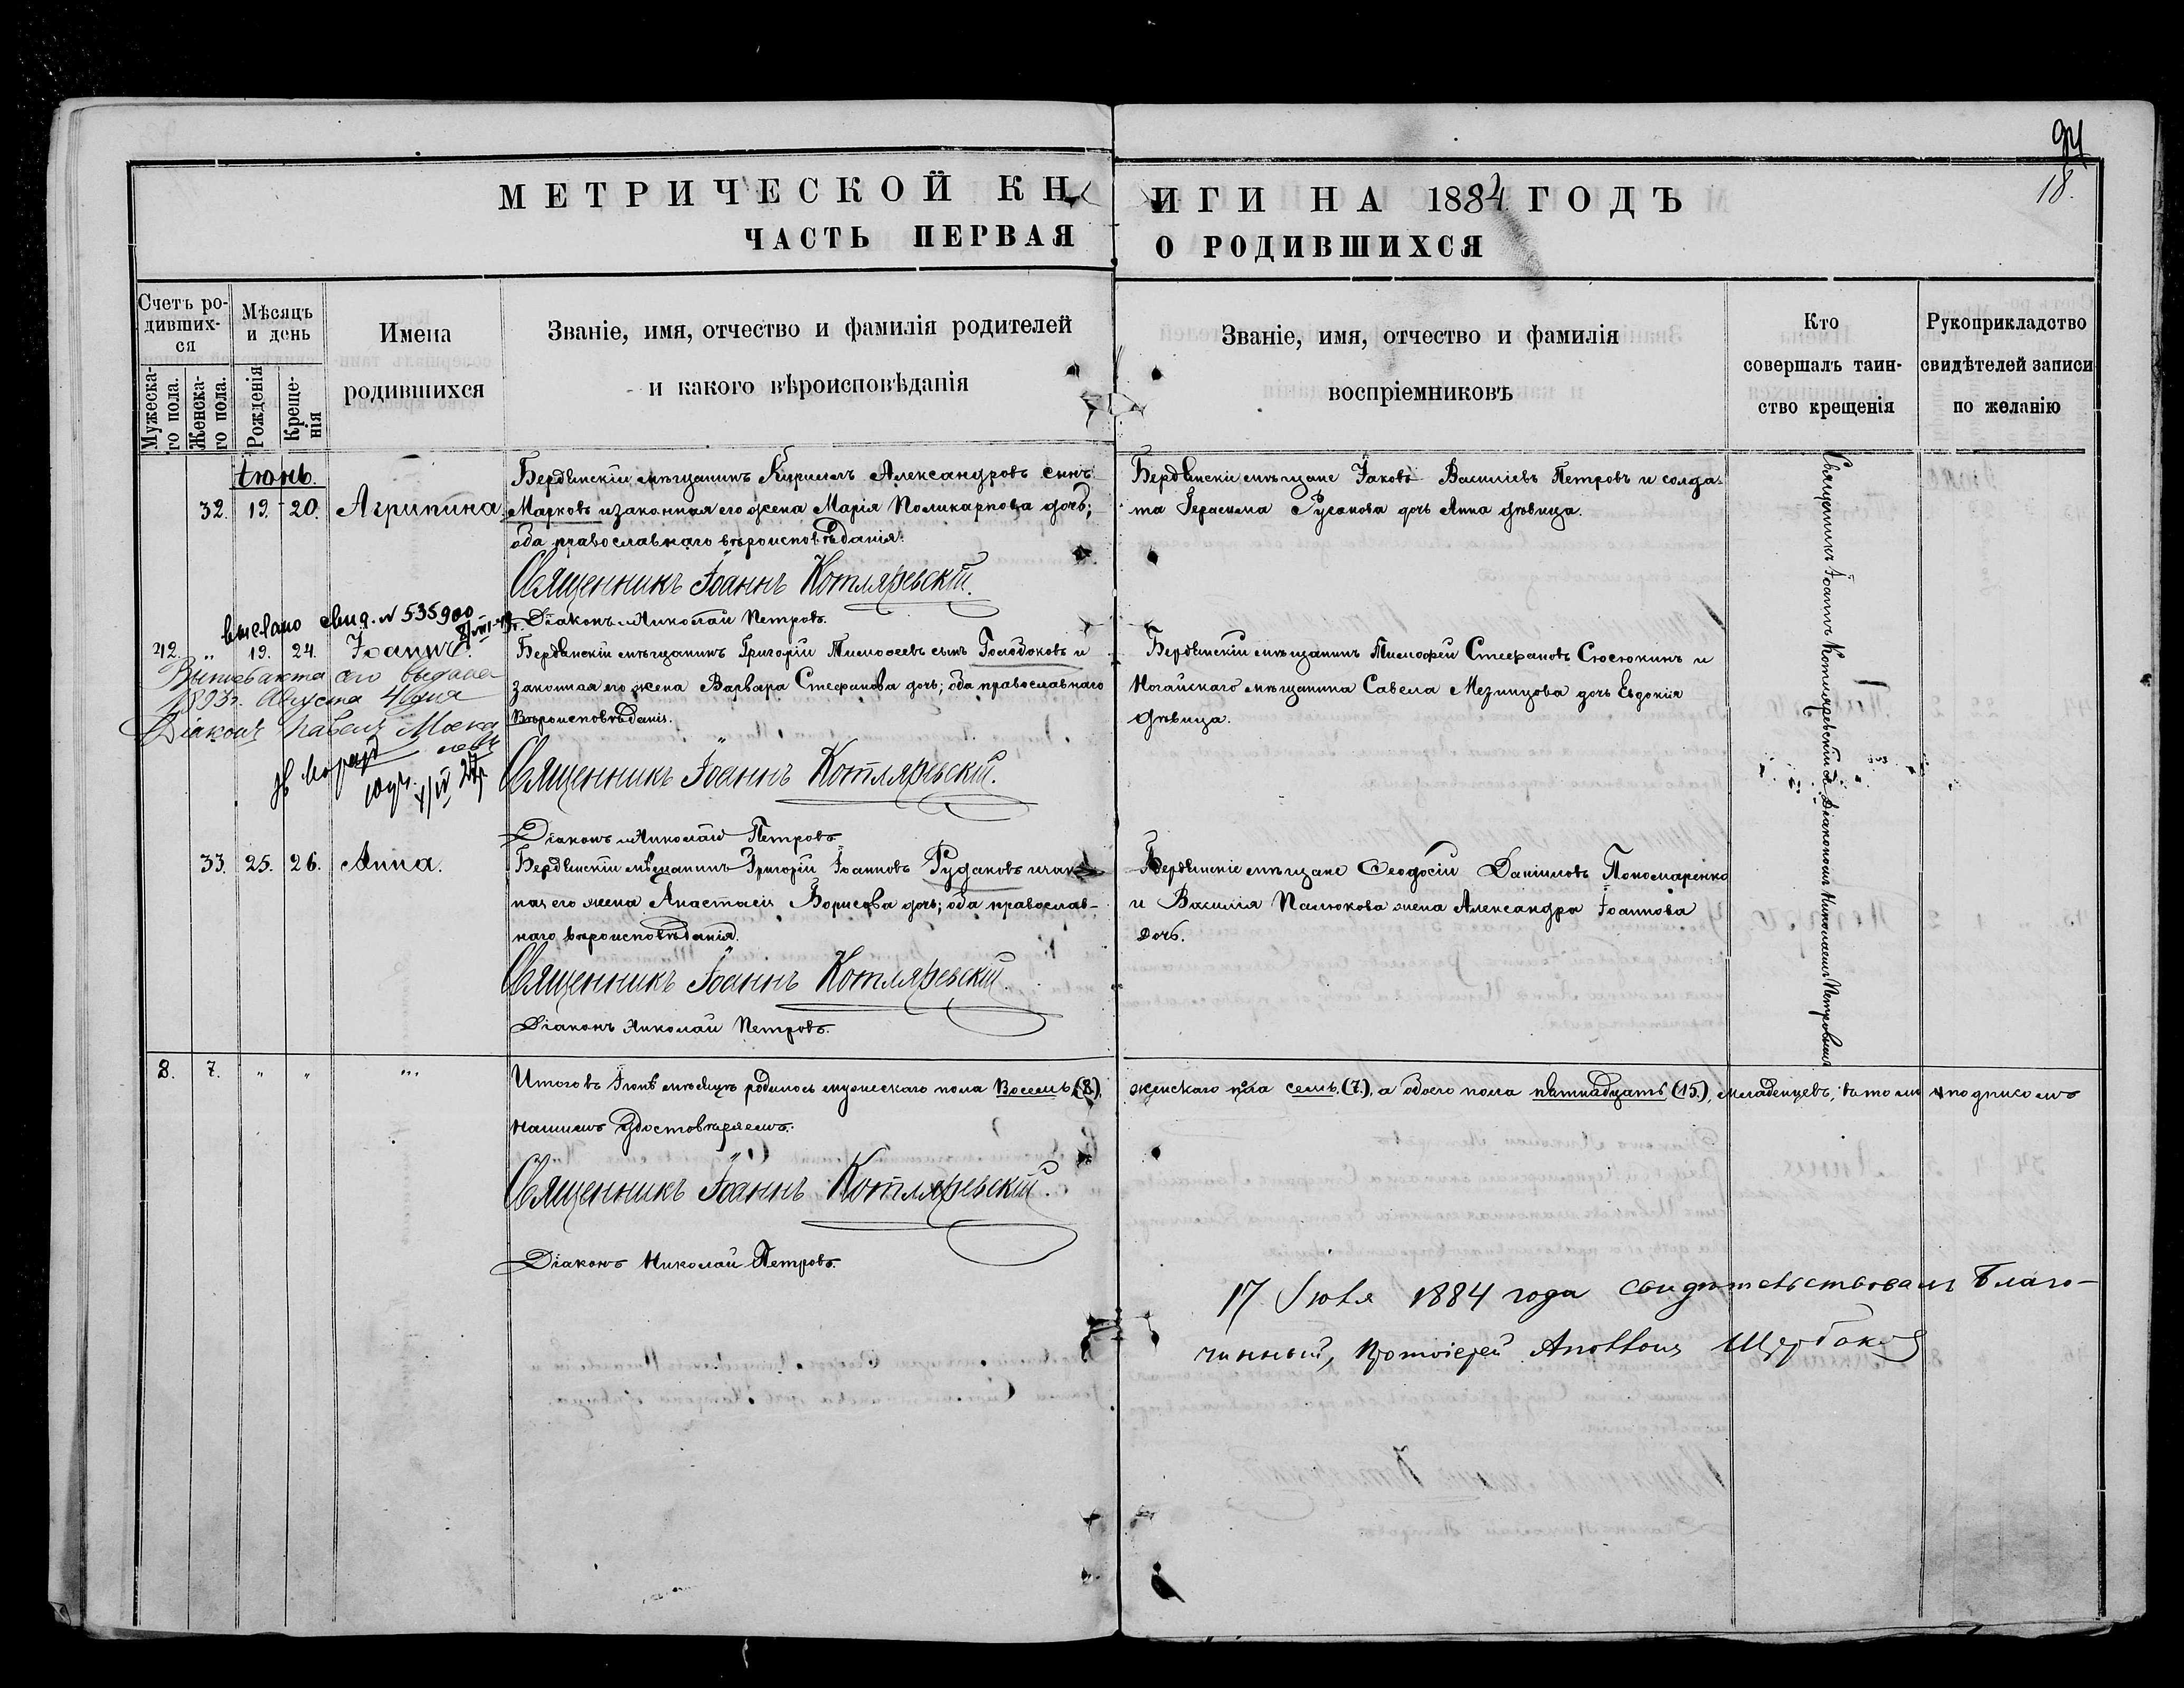 94
18.
МЕТРИЧЕСКОЙ КНИГИ НА 1884 ГОДЪ
ЧАСТЬ ПЕРВАЯ О РОДИВШИХСЯ
Счетъ ро-
дивших-
ся
Мужеска-
го пола.
Женска-
го пола.
Мѣсяцъ
и день
Рожденія
Креще-
нія
Имена
родившихся
Званіе, имя, отчество и фамилія родителей
и какого вѣроисповѣданія
Званіе, имя, отчество и фамилія
воспріемниковъ
Кто
совершалъ таин-
ство крещенія
Рукоприкладство
свидѣтелей записи
по желанію
Іюнь.
32. 19. 20. Агрипина.
Бердянскій мѣщанинъ Кириллъ Александровъ сынъ
Марковъ и законная его жена Марія Поликарпова дочь;
оба православнаго вѣроисповѣданія.
Священникъ Іоаннъ Котляревскій.
Діаконъ Николай Петровъ.
Бердянскіе мѣщане Іаковъ Василіевъ Петровъ и солда-
та Герасима Русанова дочь Анна дѣвица.
Священникъ Іоаннъ Котляревскій съ Діакономъ Николаемъ Петровымъ
свид. № 535900
42. " 19. 24. Іоаннъ.
сего выдана
1893г. Августа 4 дня
Діаконъ Павелъ
Бердянскій мѣщанинъ Григорій Тимофеевъ сынъ Голодоковъ и
законная его жена Варвара Стефанова дочь; оба православнаго
Вѣроисповѣданія.
Священникъ Іоаннъ Котляревскій.
Діаконъ Николай Петровъ.
Бердянскій мѣщанинъ Тимофей Стефановъ Сюсюкинъ и
Ногайскаго мѣщанина Савела Мезинцова дочь Евдокія
дѣвица.
33. 25. 26. Анна.
Бердянскій мѣщанинъ Григорій Іоанновъ Рудаковъ и закон-
ная его жена Анастасія Борисова дочь; оба православ-
наго вѣроисповѣданія.
Священникъ Іоаннъ Котляревскій.
Діаконъ Николай Петровъ.
Бердянскіе мѣщане Ѳеодосій Даніиловъ Пономаренко
и Василія Палюкова жена Александра Іоаннова
дочь.
8. 7. " " "
Итого въ Іюнѣ мѣсяцѣ родилось мужескаго пола Восемь (8), женскаго пола семь (7.), а обоего пола пятнадцать (15.), младенцевъ, въ томъ и подписомъ
нашимъ удостовѣряемъ.
Священникъ Іоаннъ Котляревскій.
Діаконъ Николай Петровъ.
17 Іюля 1884 года свидѣтельствовалъ Благо-
чинный, Протоіерей Аполлонъ Щербаковъ